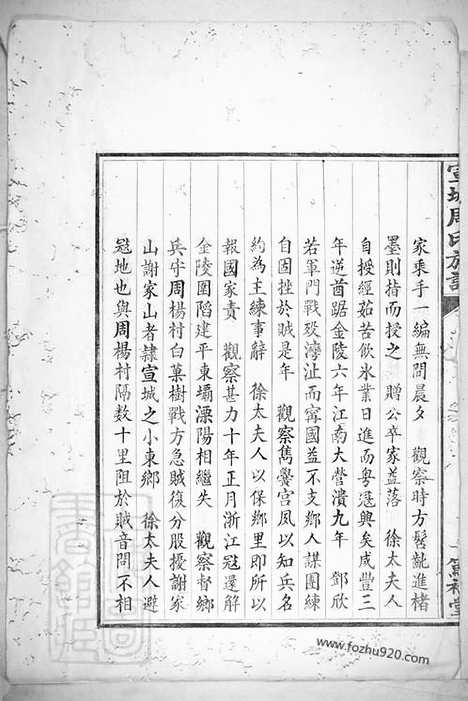 宣城周氏族譜
家乘手一編無間晨夕　觀察時方髫齔進楮
墨則指而授之　贈公卒家益落　徐太夫人
自授經茹苦飲冰業日進而粵寇興矣咸豐三
年逆酋踞金陵六年江南大營潰九年　鄧欣
若軍門戰歿灣沚而甯國益不支鄉人謀團練
自固挫於賊是年　觀察雋黌宮夙以知兵名
約為主練事辭　徐太夫人以保鄉里即所以
報國家責　觀察甚力十年正月浙江寇還解
金陵圍蹈建平東壩溧陽相繼失　觀察督鄉
兵守周楊村白菓樹戰方急賊復分股擾謝家
山謝家山者隸宣城之小東鄉　徐太夫人避
寇地也與周楊村隔數十里阻於賊音問不相
www.fozhu920.com